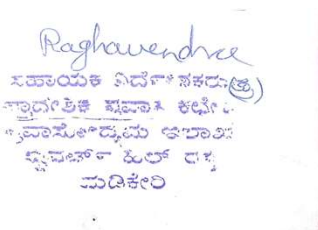 Raghavendra
ಸಹಾಯಕ ನಿರ್ದೇಶಕರು(ಪ್ರ)
ಪ್ರಾದೇಶಿಕ ಪ್ರವಾಸಿ ಕಛೇರಿ
ಪ್ರವಾಸೋದ್ಯಮ ಇಲಾಖೆ
ಸ್ಟೂವರ್ಟ್ ಹಿಲ್ ರಸ್ತೆ
ಮಡಿಕೇರಿ